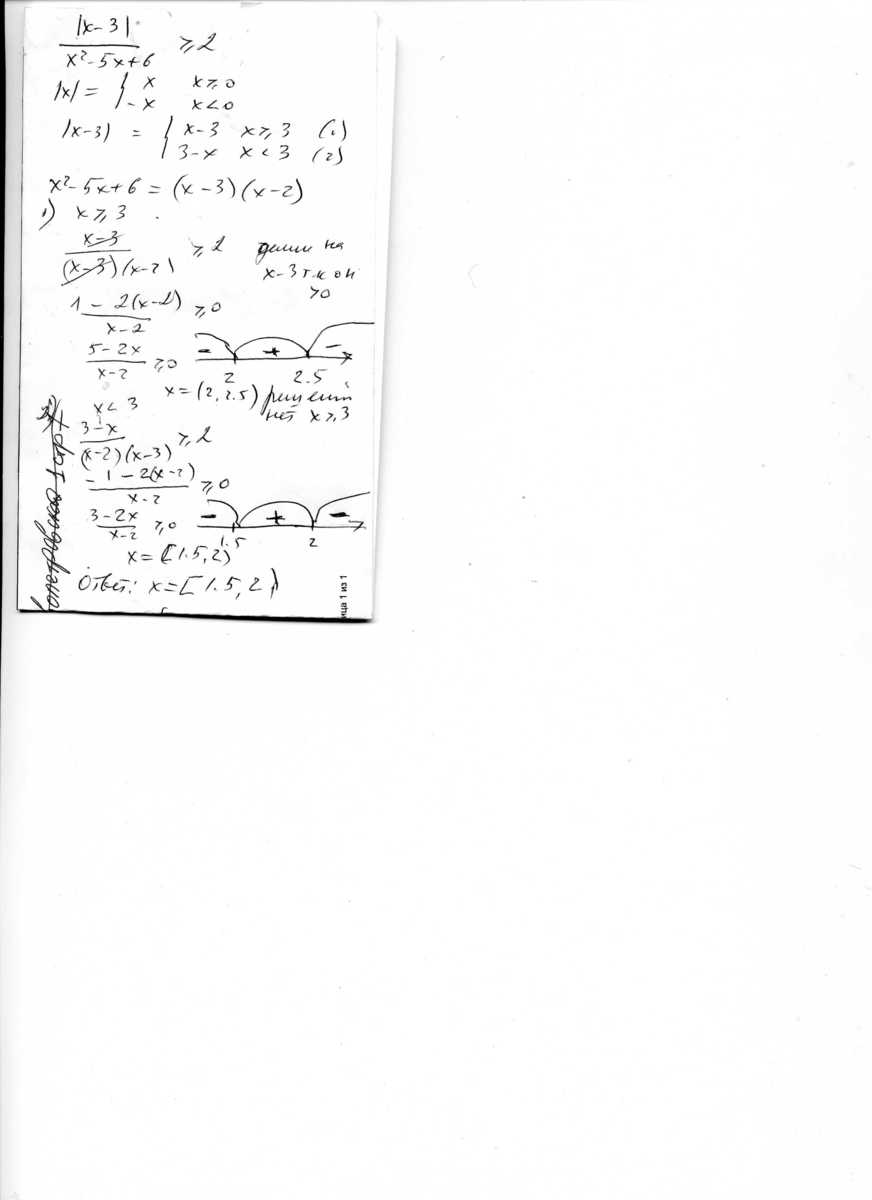 |x-3|
x²-5x+6 ≥ 2
|x| = { x x≥0
-x x<0
|x-3| = { x-3 x≥3 (1)
3-x x<3 (2)
x²-5x+6 = (x-3)(x-2)
1) x≥3
x-3
(x-3)(x-2) ≥2 делим на
x-3 т.к он
>0
1-2(x-2)
x-2 ≥0
5-2x
x-2 ≥0
- + -
2 2.5
x=(2,2.5) решений
нет x≥3
x<3
3-x
(x-2)(x-3) ≥2
-1-2(x-2)
x-2 ≥0
3-2x
x-2 ≥0
- + -
1.5 2
x=[1.5,2)
Ответ: x=[1.5,2)
ица 1 из 1